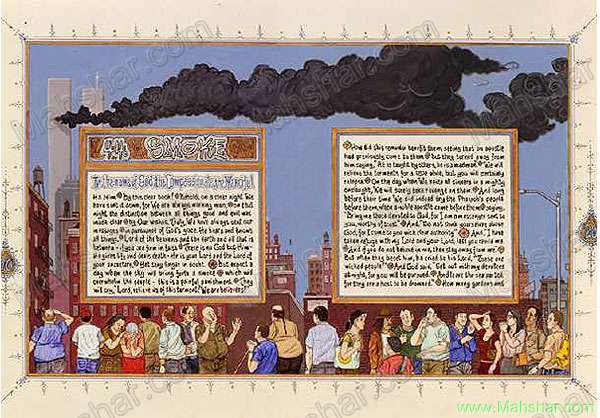 44 SMOKE
In the name of God, the Compassionate, the Merciful
By this clear book! Behold, on a clear night We
down, for We are always warning man, on that
night the distinction between all things good and evil was
made clear By Our wisdom. Truly, We have always sent out
messages in pursuance of God's grace. He hears and knows
all things. Lord of the heavens and the earth and all that is
between - if you are firm in faith There is no God but Him.
He gives life and deals death - He is your Lord and the Lord of
your ancestors. Yet they linger in doubt. But expect a
day when the sky will bring forth a smoke which will
overwhelm the people - this is a painful punishment. They
will cry, "Lord, relieve us of this torment! We are believers!"
How did this remainder benefit them, seeing that an apostle
had previously come to them but they turned away from
him saying, "He is taught by others, he is a madman." We will
relieve the torment for a little while, but you will certainly
relapse. On the day when We seize all sinners in a mighty
onslaught, We will surely take revenge on them. And long
before their time We did indeed try the Pharaoh's people
before them, when the apostle came before them saying,
"Bring me those devoted to God, for I am a messenger sent to
you, worthy of trust." And, "Do not think yourselves above
God, for I come to you with clear authority." And, "I have
taken refuge with my Lord and your Lord, lest you revile me.
And if you do not believe in me, then stay away from me."
But when they beset him, he cried to his Lord, "These are
wicked people." And God said, "Set out with my devotees
at night, for you will be pursued. And leave the sea parted
for they are a host to be drowned." How many gardens and
www.Mahshar.com
Mahshar.com